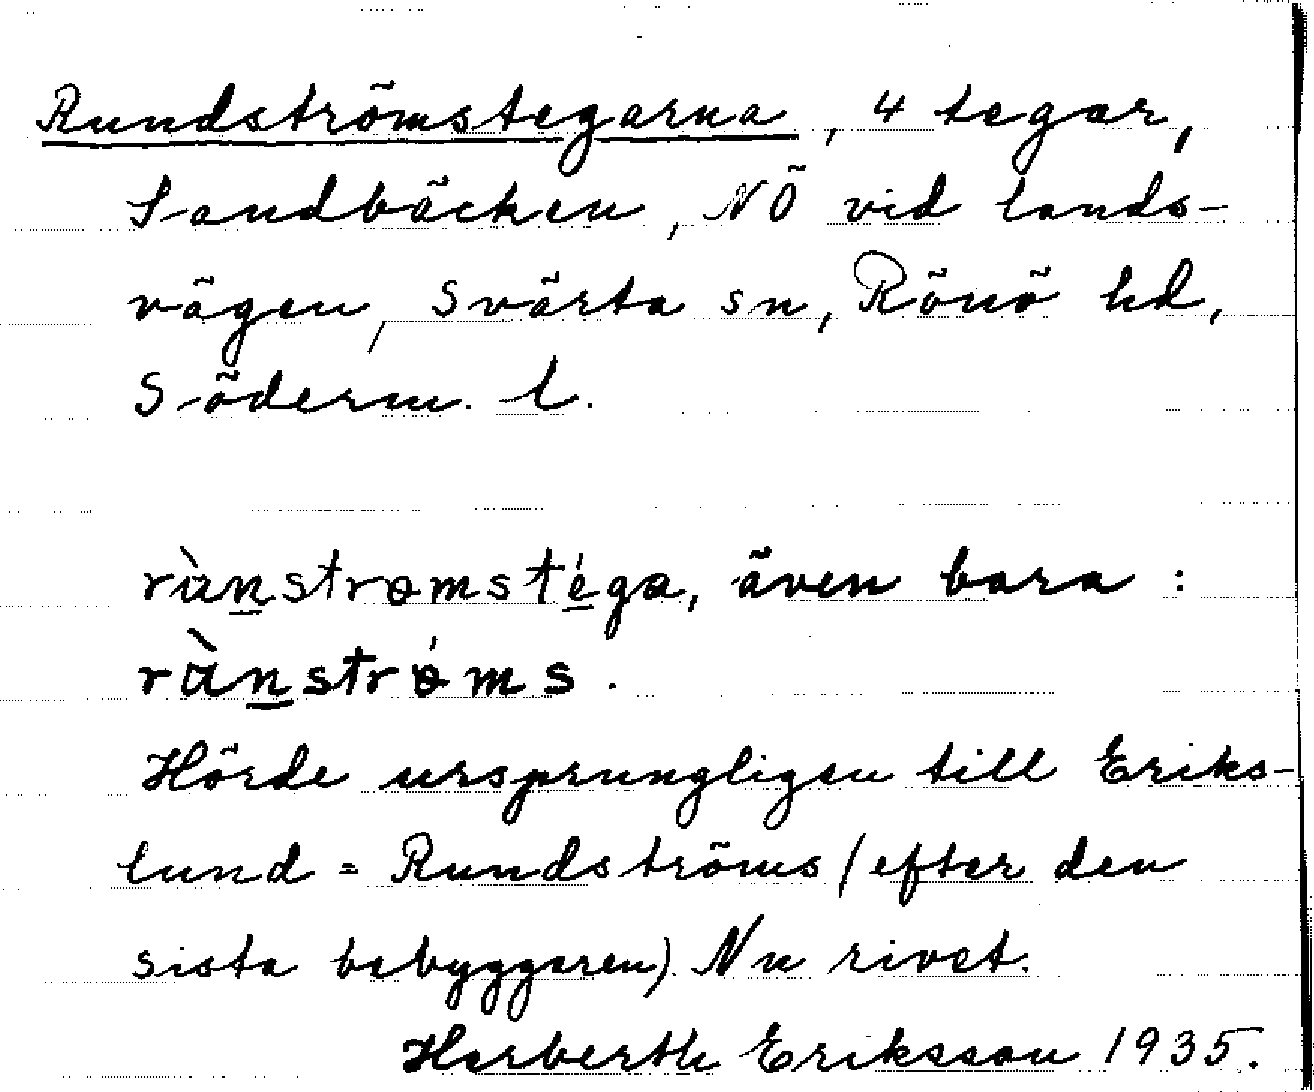 Rundströmstegarna, 4 tegar,
Sandbäcken, NÖ vid lands-
vägen, Svärta sn, Rönö hd,
Söderm. l.
rànstrømstéga, även bara :
rànstrǿms.
Hörde ursprungligen till Eriks-
lund = Rundströms (efter den
sista bebyggaren) Nu rivet.
Herberth Eriksson 1935.